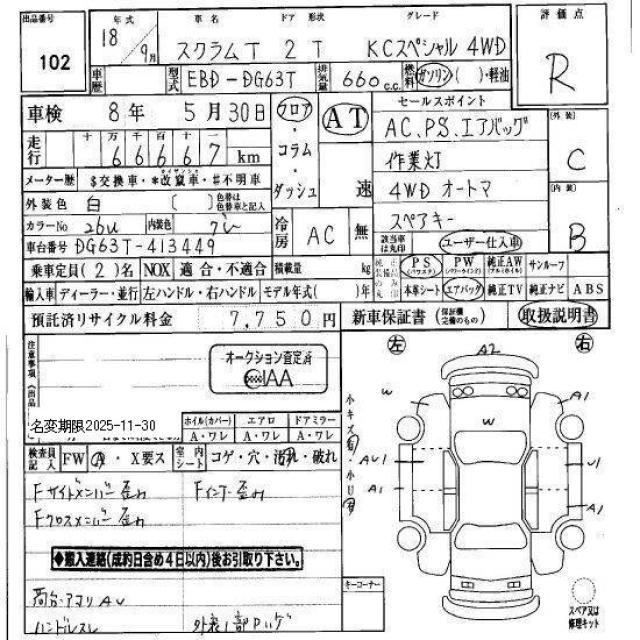 出品番号 年式 車名 ドア 形状 グレード 評価点
102 18 9月 スクラムT 2 T KCスペシャル 4WD R
車歴 型式 EBD-DG63T 排気量 660 c.c. 燃料 ガソリン( )・軽油
車検 8年 5月30日 フロア・コラム・ダッシュ AT 速 セールスポイント
AC.PS.エアバッグ 外装 C
走行 十万千百十一 66667 km 作業灯
メーター歴 $交換車・*改竄車・#不明車 4WD オートマ 内装 B
外装色 白 ( ) 色替は色替車と記入 スペアキー
カラーNo 26U 内装色 グレー 冷房 AC 無 該当車は丸印 ユーザー仕入車
車台番号 DG63T-413449
乗車定員(2)名 NOX 適合・不適合 積載量 kg PS(パワステ) PW(パワーウインド) 純正AW(アルミホイル) サンルーフ
輸入車 ディーラー・並行 左ハンドル・右ハンドル モデル年式( )年 本革シート エアバッグ 純正TV 純正ナビ ABS
預託済リサイクル料金 7,750円 新車保証書(保証欄完備のもの) 取扱説明書
注意事項
オークション査定済
AIAA
名変期限2025-11-30
ホイル(カバー) エアロ ドアミラー
A・ワレ A・ワレ A・ワレ
検査員記入 FW A・X要ス 室内シート コゲ・穴・汚れ・破れ
Fサイドメンバー歪み Fインナー歪み
Fクロスメンバー歪み
◆搬入連絡(成約日含め4日以内)後お引取り下さい。
荷台・アオリ AU
ハンドルスレ 外装1部ハゲ
左 A2 右
W A1
小キズ有
W
AU1 U1
A1
小U有
A1
キーコーナー
スペア又は修理キット